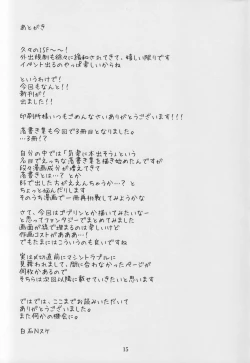 あとがき
久々のISF～～！
外出規制も徐々に緩和されてきて、嬉しい限りです
イベント出るのやっぱ楽しいからね
というわけで！
今回もなんと！！
新刊が！
出ました！！
印刷所様いつもごめんなさいありがとうございます！！！
落書き集も今回で3冊目となりました。
…3冊！？
自分の中では「気楽に本出そう」という
名目でえっちな落書き集を描き始めたんですが
段々漫画成分が増えてきて
落書きとは…？とか
で出した方がええんちゃうか…？と
ちょっと悩んだりします
そのうち漫画で一冊再挑戦してみようかな
さて、今回はゴブリンとか描いてみたいなー
と思ってファンタジーでまとめてみました
画面が緑で埋まるのは楽しいけど
作画コストがああああ！！！
でもたまにはこういうのも良いですね
実は〆切直前にマシントラブルに
見舞われまして、間に合わなかったページが
何枚かあるので
そちらは次回以降に載せていきたいと思います
ではでは、ここまでお読みいただいて
ありがとうございました。
また何かの機会に。
白石Nスケ
15